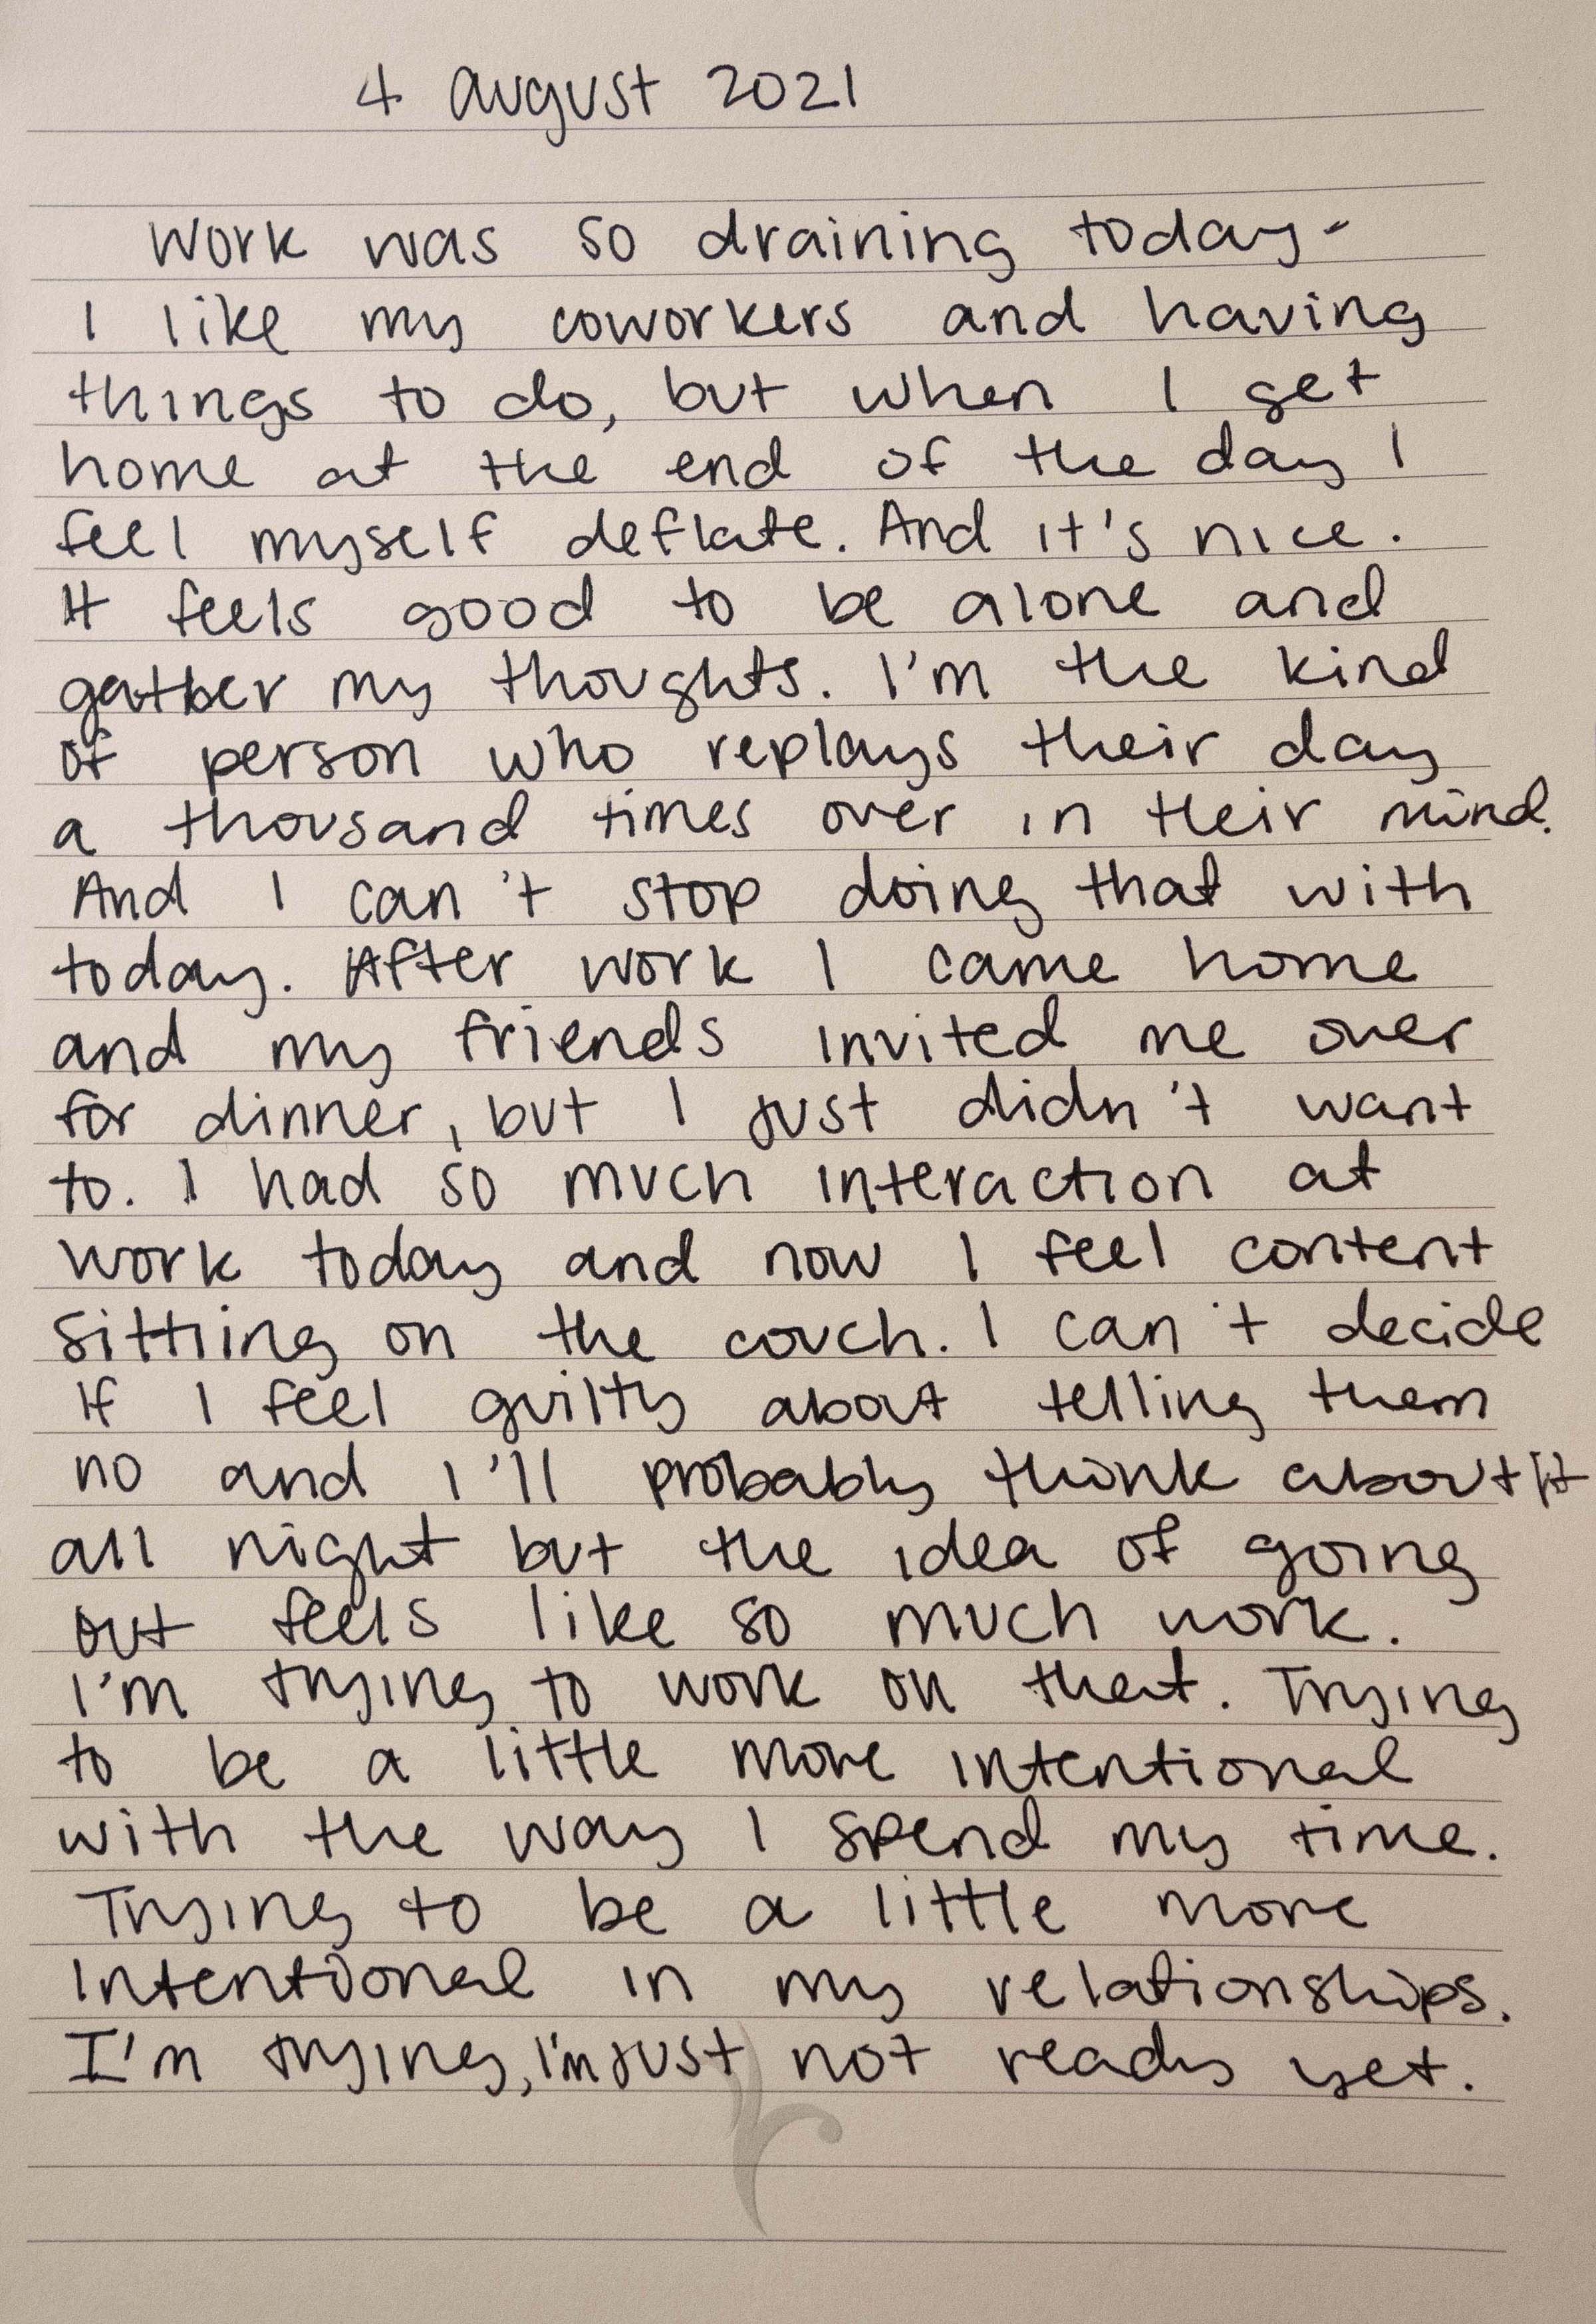 4 august 2021
Work was so draining today-
I like my coworkers and having
things to do, but when I get
home at the end of the day I
feel myself deflate. And it's nice.
It feels good to be alone and
gather my thoughts. I'm the kind
of person who replays their day
a thousand times over in their mind.
And I can't stop doing that with
today. After work I came home
and my friends invited me over
for dinner, but I just didn't want
to. I had so much interaction at
work today and now I feel content
sitting on the couch. I can't decide
if I feel guilty about telling them
no and I'll probably think about it
all night but the idea of going
out feels like so much work.
I'm trying to work on that. Trying
to be a little more intentional
with the way I spend my time.
Trying to be a little more
intentional in my relationships.
I'm trying, I'm just not ready yet.